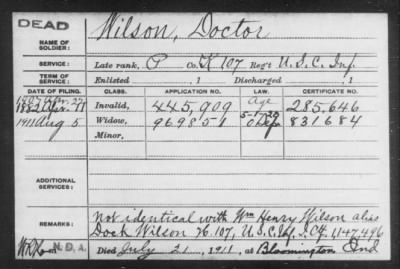 DEAD
Wilson, Doctor
NAME OF SOLDIER:
SERVICE: Late rank, P Co. K 107 Reg't U.S.C. Inf.
TERM OF SERVICE: Enlisted , 1 Discharged , 1
DATE OF FILING. CLASS. APPLICATION NO. LAW. CERTIFICATE NO.
Age
1882 Apr. Invalid, 445,909 285,646
1911 Aug 5 Widow, 969851 831684
Minor,
ADDITIONAL SERVICES:
REMARKS: Not identical with Wm Henry Wilson alias
Dock Wilson K. 107, U.S.C. Inf. 1,147,496
N.D.A. Died July 21, 1911, at Bloomington Ind